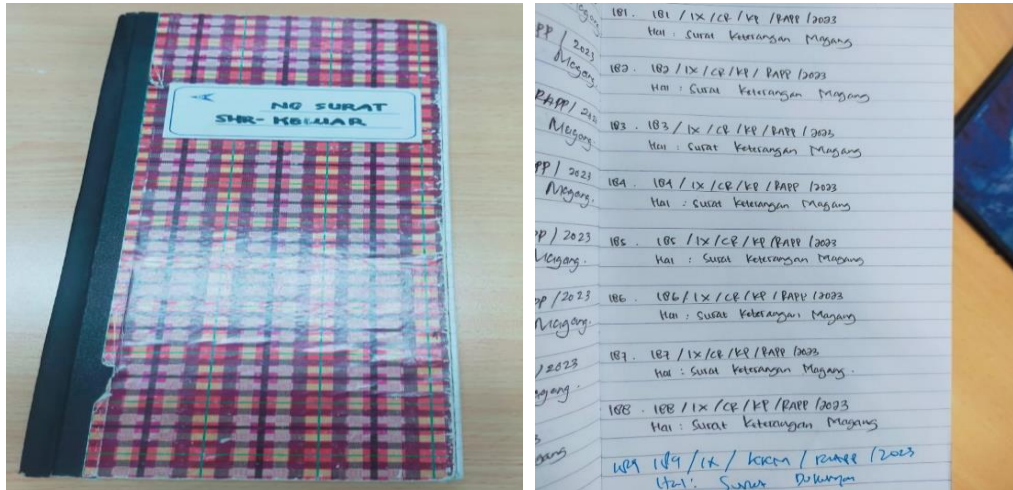 NO SURAT
SHR- KELUAR
PP / 2023
Magang.
RAPP / 202
Magang.
PP / 2023
Magang.
PP / 2023
Magang.
PP / 2023
Magang.
/ 2023
agang.
gang
181. 181 / IX / CR / KP / RAPP / 2023
Hal : Surat Keterangan Magang
182. 182 / IX / CR / KP / RAPP / 2023
Hal : Surat Keterangan Magang
183. 183 / IX / CR / KP / RAPP / 2023
Hal : Surat Keterangan Magang
184. 184 / IX / CR / KP / RAPP / 2023
Hal : Surat Keterangan Magang
185. 185 / IX / CR / KP / RAPP / 2023
Hal : Surat Keterangan Magang
186. 186 / IX / CR / KP / RAPP / 2023
Hal : Surat Keterangan Magang
187. 187 / IX / CR / KP / RAPP / 2023
Hal : Surat Keterangan Magang.
188. 188 / IX / CR / KP / RAPP / 2023
Hal : Surat Keterangan Magang
189 189 / IX / / RAPP / 2023
Hal: Surat Dukungan